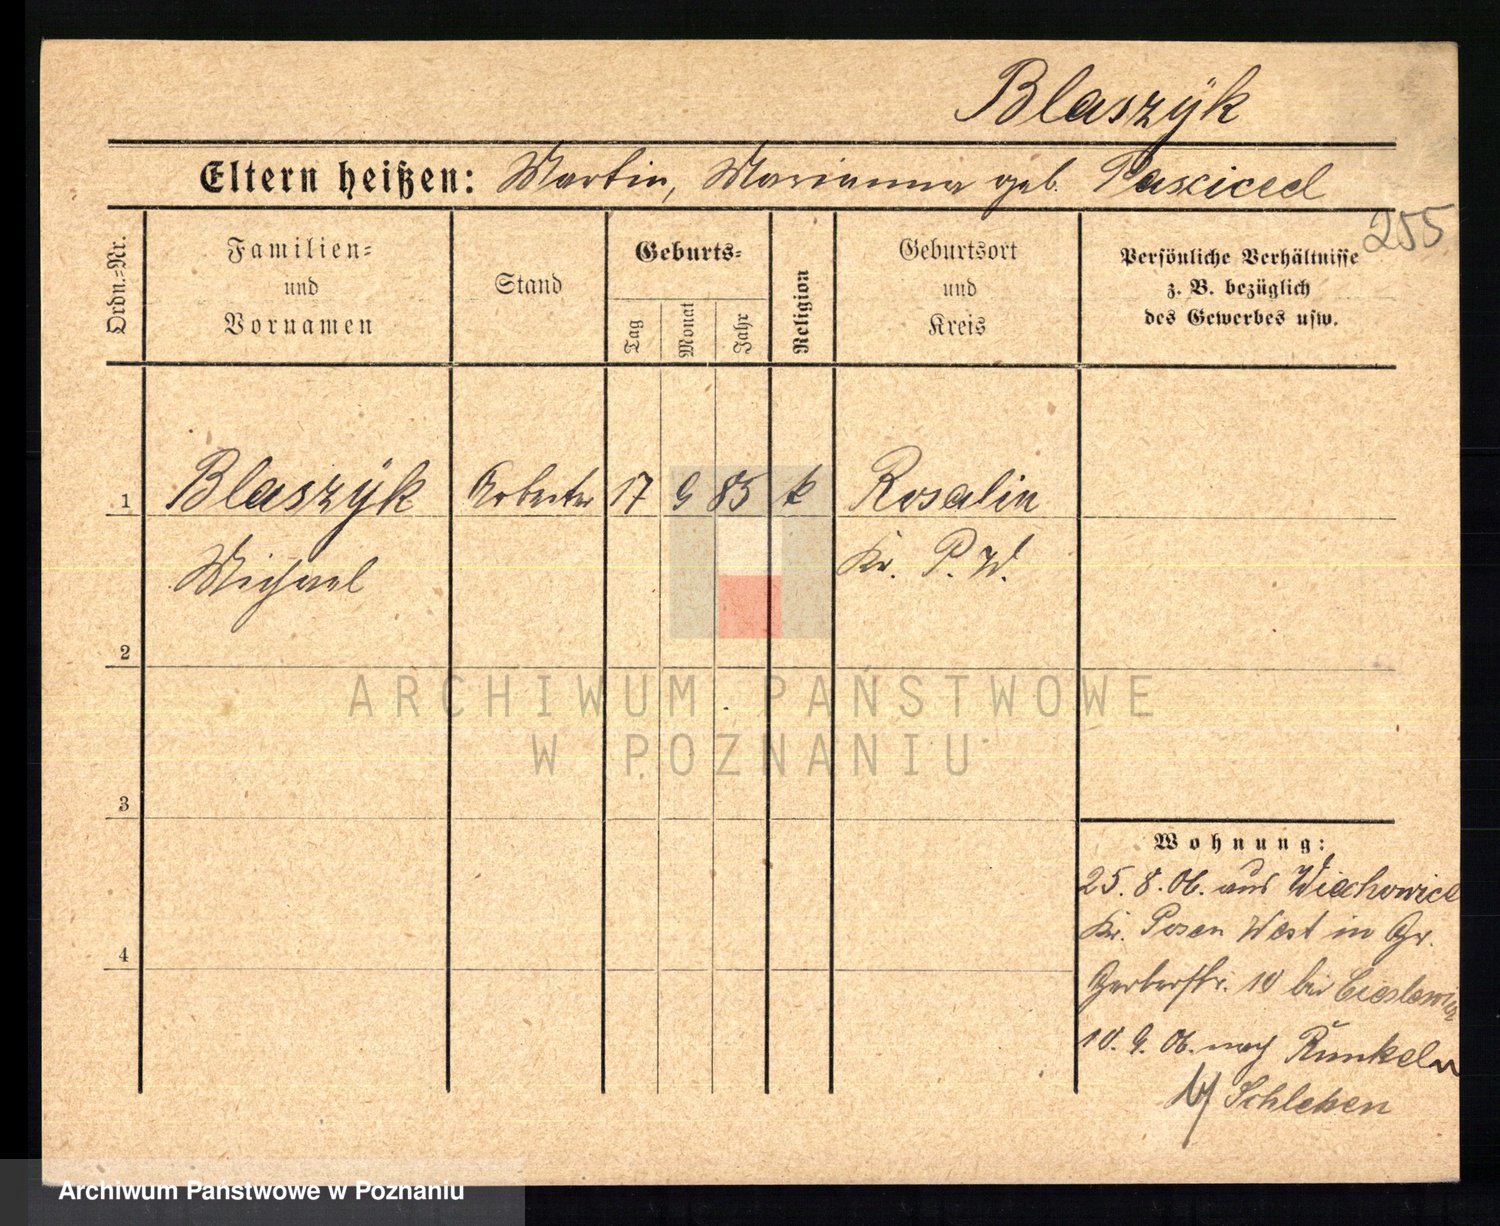 Blaszÿk
Eltern heißen: Martin, Marianna geb.
255
Ordn.=Nr.
Familien=
und
Vornamen
Stand
Geburts=
Tag
Monat
Jahr
Religion
Geburtsort
und
Kreis
Persönliche Verhältnisse
z. B. bezüglich
des Gewerbes usw.
1 Blaszÿk Arbeiter 17 9 85 k Rosalin
Michael Kr. P. W.
2
ARCHIWUM PAŃSTWOWE
W POZNANIU
3
Wohnung:
25. 8. 06. aus
Kr. Posen West in Gr.
4
Gerberstr. 10 bei
10. 9. 06. nach Runkeln
Archiwum Państwowe w Poznaniu